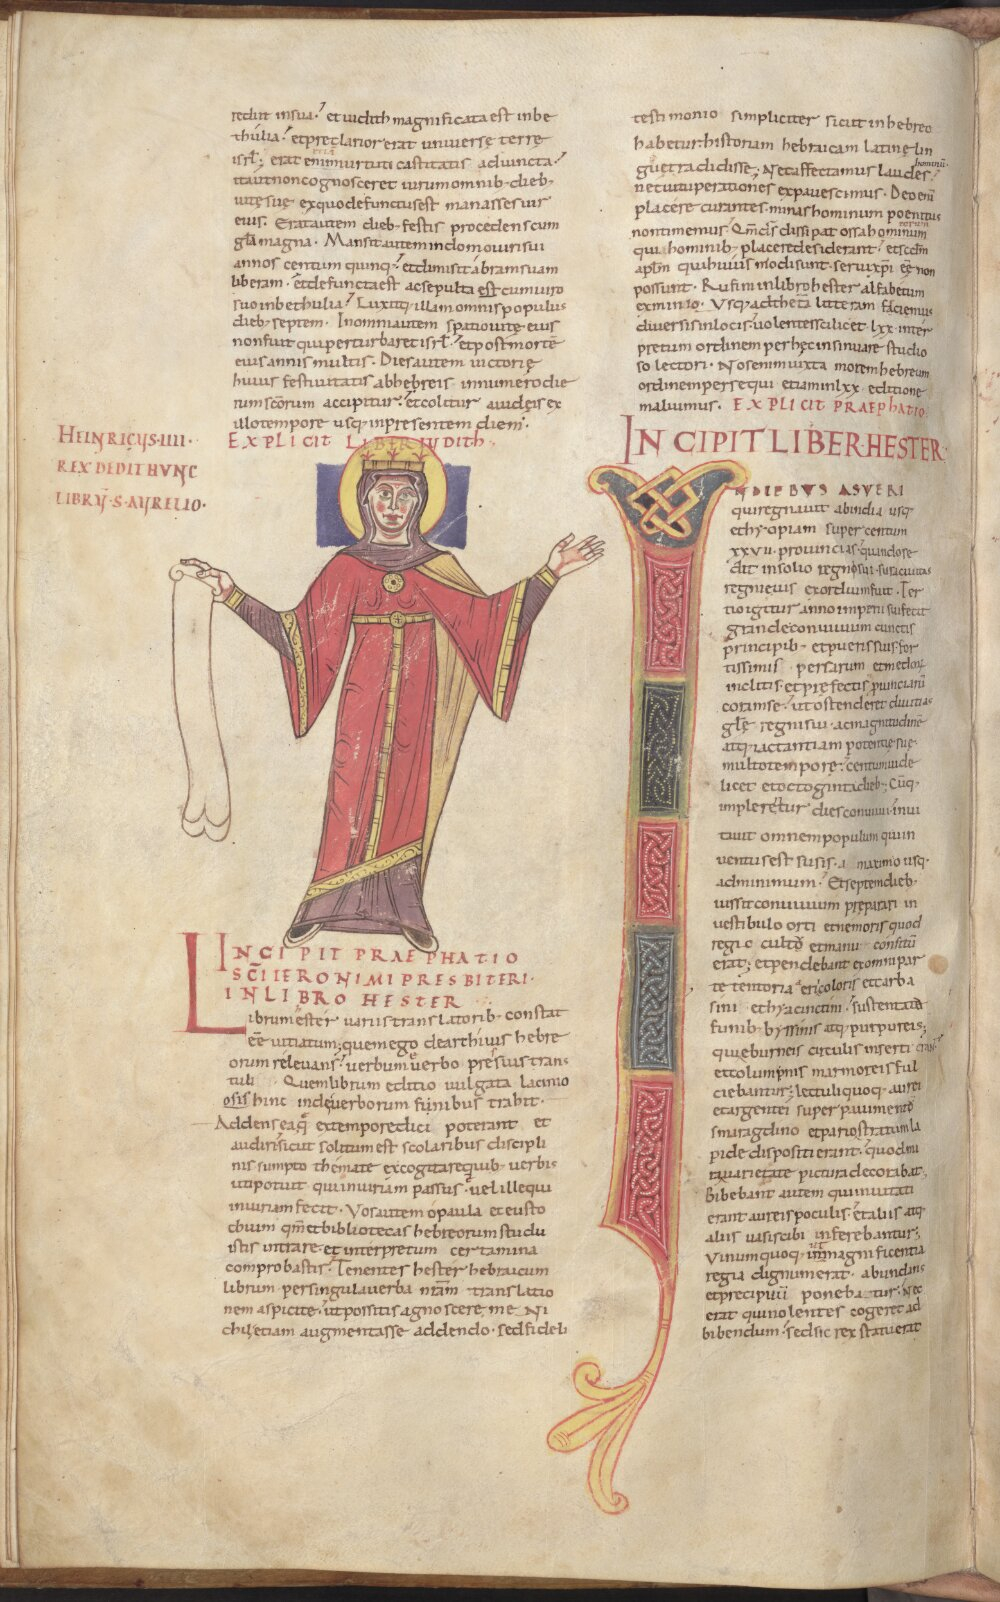 rediit in sua; et iudith magnificata est in be
thulia; et preclarior erat universe terre
isrl; erat enim virtuti castitatis adiuncta;
ita ut non cognosceret virum omnib dieb
vite sue ex quo defunctus est manasses vir
eius. Erat autem dieb festis procedens cum
gla magna. Mansit autem in domo viri sui
annos centum quinq; et dimisit abram suam
liberam. et defuncta est ac sepulta est cum viro
suo in bethulia. Luxitq; illam omnis populus
dieb septem. In omni autem spatio vite eius
non fuit qui perturbaret isrl. et post morte
eius annis multis. Dies autem victorie
huius festivitatis ab hebreis in numero die
rum scorum accipitur. et colitur a iudeis ex
illo tempore usq; in presentem diem.
EXPLICIT LIBER IUDITH.
HEINRICVS IIII
REX DEDIT HVNC
LIBRV S AVRELIO
INCIPIT PRAEPHATIO
SCI IERONIMI PRESBITERI
IN LIBRO HESTER
Librum ester variis translatorib constat
ee vitiatum; quem ego de archivis hebre
orum relevans; verbum e verbo pressius trans
tuli. Quem librum editio vulgata lacinio
osis hinc inde verborum funibus trahit.
Addens eaq ex tempore dici poterant et
audiri; sicut solitum est scolaribus discipli
nis sumpto themate excogitare quib verbis
uti potuit qui iniuriam passus vel ille qui
iniuriam fecit. Vos autem o paula et eusto
chium qm et bibliotecas hebreorum studu
istis intrare et interpretum certamina
comprobastis. Tenentes hester hebraicum
librum per singula verba nram translatio
nem aspicite; ut possitis agnoscere me ni
chil etiam augmentasse addendo. sed fideli
testimonio simpliciter sicut in hebreo
habetur historiam hebraicam latine lin
gue tradidisse; Nec affectamus laudes hominu
nec vituperationes expavescimus. Deo eni
placere curantes minas hominum poenitus
non timemus. Qm ds dissipat ossa hominum
qui hominib placere desiderant. et scdm
aplm qui huius modi sunt servi xpi ee non
possunt. Rursum in libro hester alfabetum
ex minio. Usq; ad theta litteram fecimus
diversis in locis; volentes scilicet lxx inter
pretum ordinem per hec insinuare studio
so lectori. Nos enim iuxta morem hebreum
ordinem persequi etiam in lxx editione
maluimus. EXPLICIT PRAEPHATIO.
INCIPIT LIBER HESTER
IN DIEBUS ASVERI
qui regnavit ab india usq
ethyopiam super centum
xxvii provincias; quando se
dit in solio regni sui; susa civitas
regni eius exordium fuit. Ter
tio igitur anno imperii sui fecit
grande convivium cunctis
principib et pueris suis for
tissimis persarum et medorum
inclitis et prefectis provinciaru
coram se; ut ostenderet divitias
gle regni sui ac magnitudine
atq; iactantiam potentie sue
multo tempore; centum vide
licet et octoginta dieb; Cuq;
implerentur dies convivii invi
tavit omnem populum qui in
ventus est susis a maximo usq
ad minimum; Et septem dieb
iussit convivium preparari in
vestibulo orti et nemoris quod
regio cultu et manu consitu
erat; et pendebant ex omni par
te tentoria aerii coloris et carba
sini et hyacinctini; sustentata
funib byssinis atq; purpureis;
qui eburneis circulis inserti erant
et columpnis marmoreis ful
ciebantur; lectuli quoq; aurei
et argentei super pavimento
smaragdino et pario stratum la
pide dispositi erant; quod mi
ra varietate pictura decorabat;
Bibebant autem qui invitati
erant aureis poculis; et aliis atq;
aliis vasis cibi inferebantur;
Vinum quoq; ut magnificentia
regia dignum erat. abundans
et precipuum ponebatur; Nec
erat qui nolentes cogeret ad
bibendum; sed sic rex statuerat